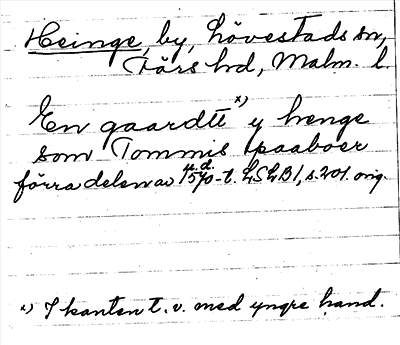 Heinge, by, Lövestads sn,
Färs hd, Malm. l.
En gaardtt x) y henge
som Tommis paaboer
förra delen av u.d. 1570-t. LSLB 1, s. 201. orig.
x) I kanten t.v. med yngre hand.